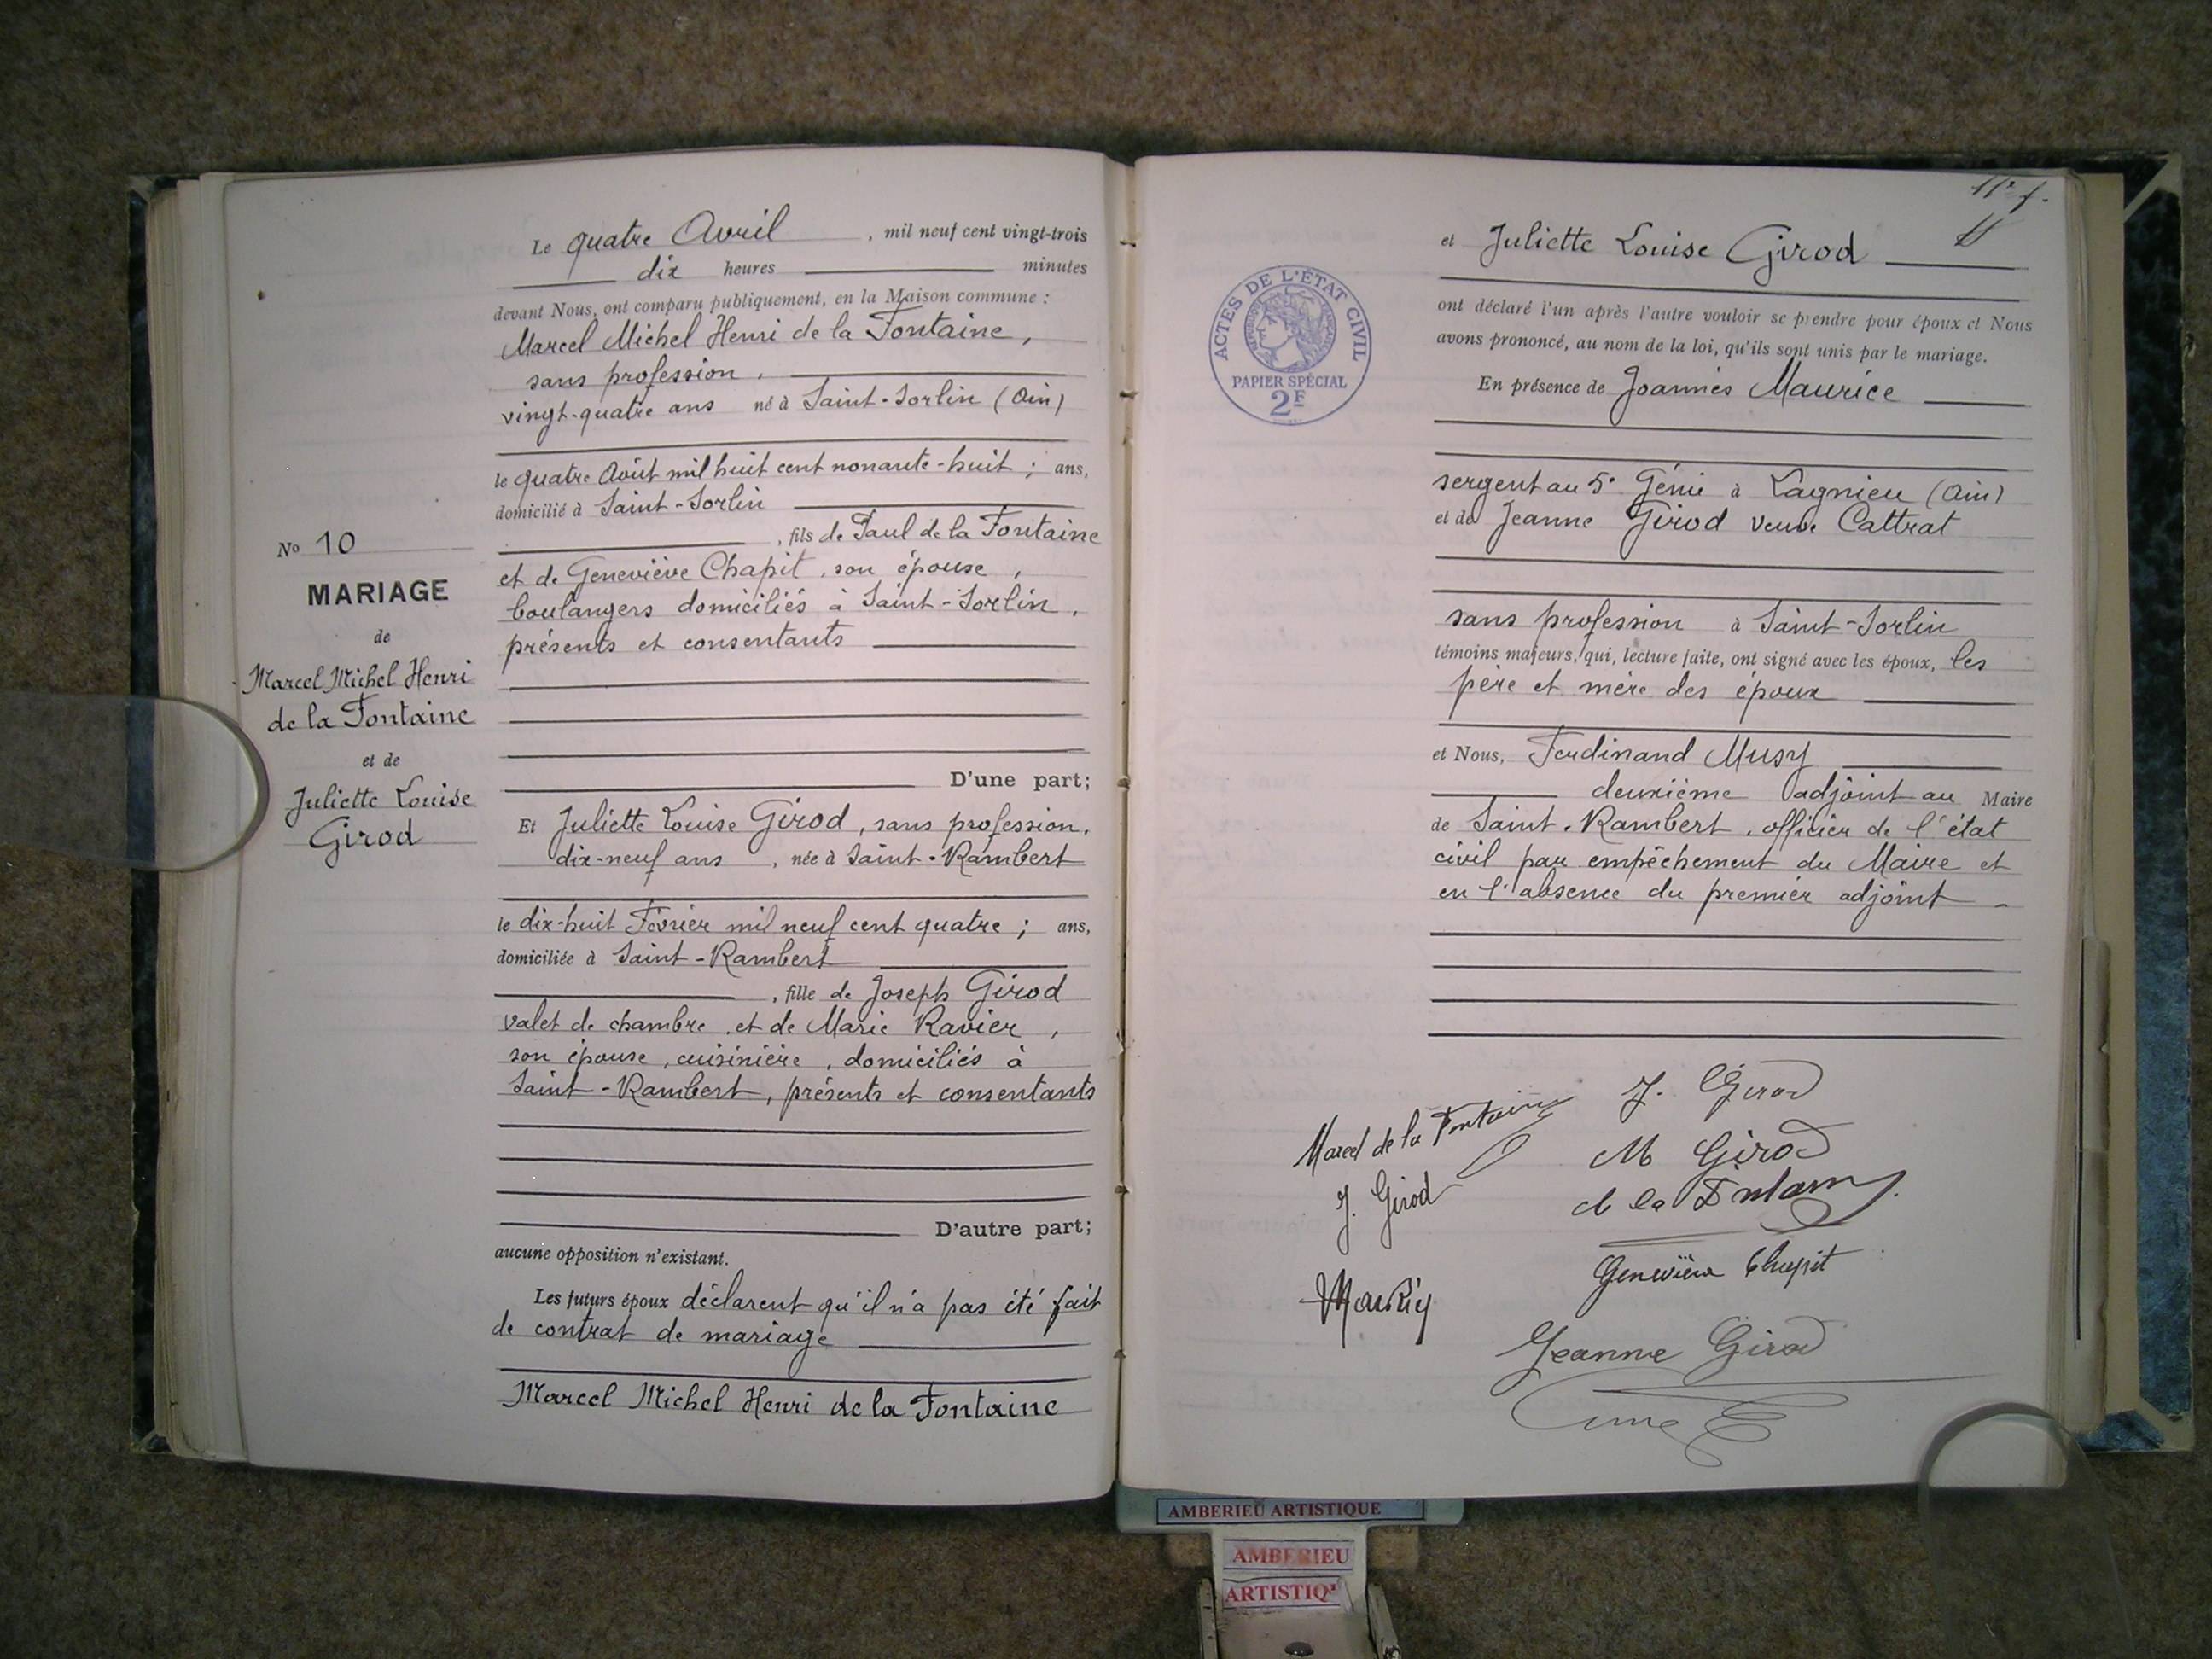 Le quatre Avril, mil neuf cent vingt-trois
dix heures minutes
devant Nous, ont comparu publiquement, en la Maison commune :
Marcel Michel Henri de la Fontaine,
sans profession,
vingt-quatre ans né à Saint-Sorlin (Ain)
le quatre Août mil huit cent nonante-huit ; ans,
domicilié à Saint-Sorlin
, fils de Paul de la Fontaine
et de Geneviève Chapit, son épouse,
boulangers domiciliés à Saint-Sorlin,
présents et consentants
D'une part;
Et Juliette Louise Girod, sans profession,
dix-neuf ans, née à Saint-Rambert
le dix-huit Février mil neuf cent quatre ; ans,
domiciliée à Saint-Rambert
, fille de Joseph Girod
valet de chambre, et de Marie Ravier,
son épouse, cuisinière, domiciliés à
Saint-Rambert, présents et consentants
D'autre part;
aucune opposition n'existant.
Les futurs époux déclarent qu'il n'a pas été fait
de contrat de mariage
Marcel Michel Henri de la Fontaine
No 10
MARIAGE
de
Marcel Michel Henri
de la Fontaine
et de
Juliette Louise
Girod
et Juliette Louise Girod
ont déclaré l'un après l'autre vouloir se prendre pour époux et Nous
avons prononcé, au nom de la loi, qu'ils sont unis par le mariage.
En présence de Joannès Maurice
sergent au 5e Génie à Lagnieu (Ain)
et de Jeanne Girod veuve Cattrat
sans profession à Saint-Sorlin
témoins majeurs, qui, lecture faite, ont signé avec les époux, les
père et mère des époux
et Nous, Ferdinand Musy
deuxième adjoint au Maire
de Saint-Rambert, officier de l'état
civil par empêchement du Maire et
en l'absence du premier adjoint
ACTES DE L'ÉTAT CIVIL
PAPIER SPÉCIAL
2F
Marcel de la Fontaine
J. Girod
J. Girod
M Girod
de la Fontaine
Geneviève Chapit
Jeanne Girod
AMBERIEU ARTISTIQUE
AMBERIEU
ARTISTIQ